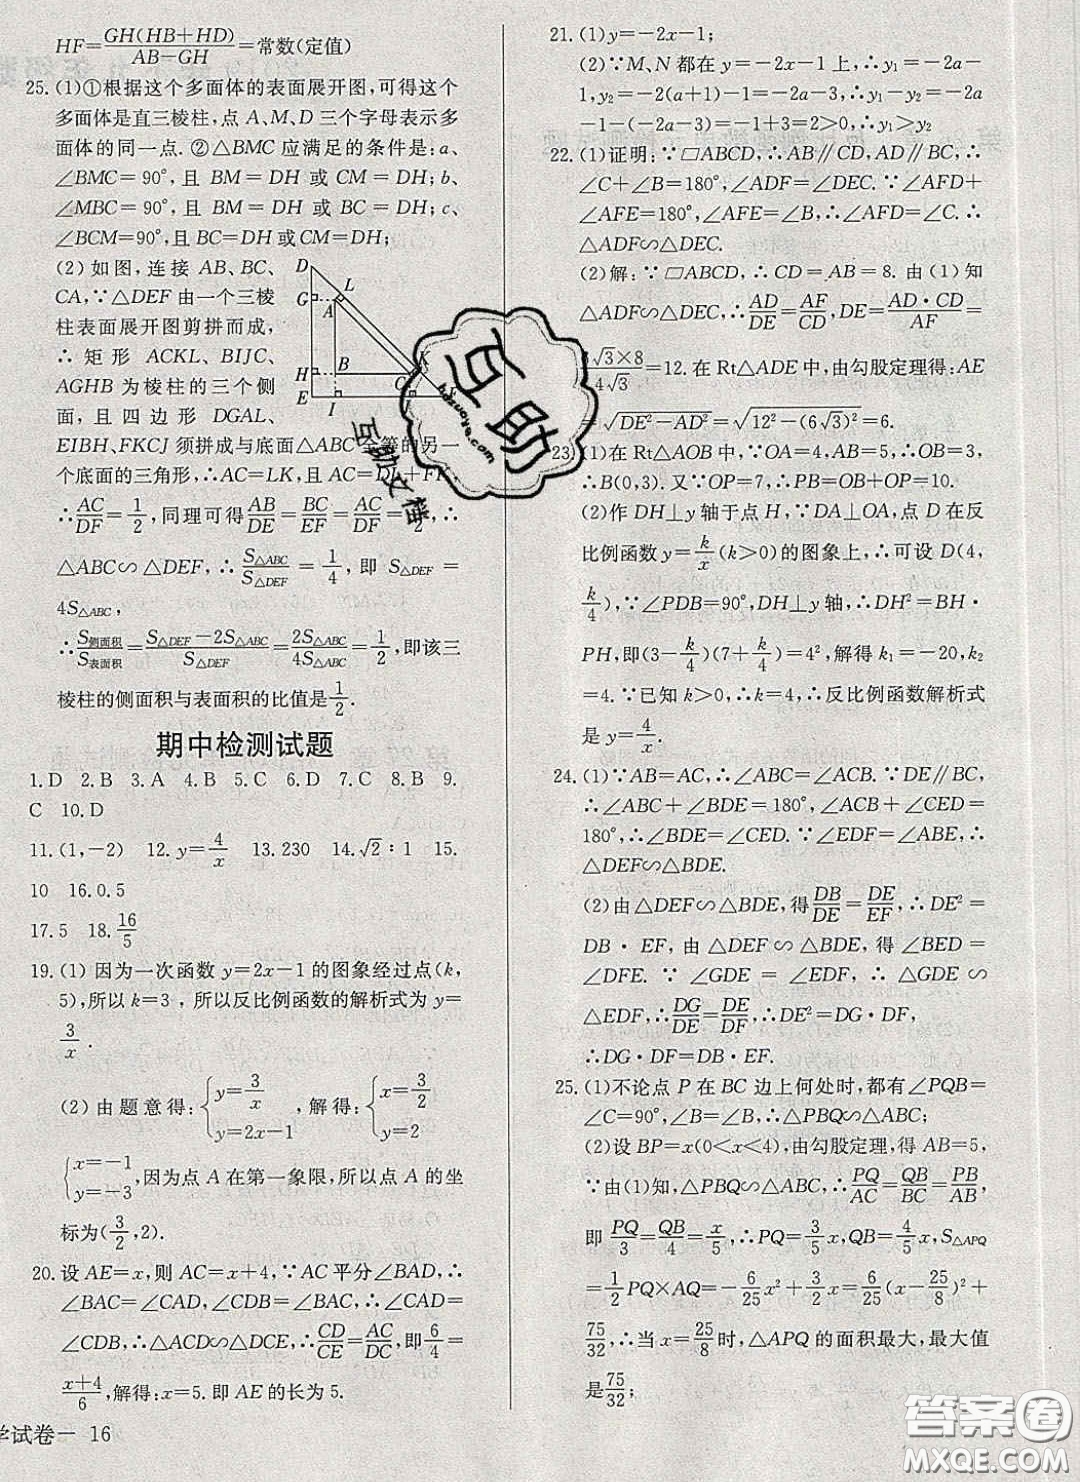 HF=GH(HB+HD)/(AB-GH)=常数(定值)
25. (1)①根据这个多面体的表面展开图,可得这个
多面体是直三棱柱,点 A、M、D 三个字母表示多
面体的同一点. ②△BMC 应满足的条件是:a、
∠BMC=90°,且 BM=DH 或 CM=DH;b、
∠MBC=90°,且 BM=DH 或 BC=DH;c、
∠BCM=90°,且 BC=DH 或CM=DH;
(2) 如图,连接 AB、BC、
CA,∵△DEF 由一个三棱
柱表面展开图剪拼而成,
∴ 矩形 ACKL、BIJC、
AGHB 为棱柱的三个侧
面,且四边形 DGAL、
EIBH、FKCJ 须拼成与底面△ABC 全等的另一
个底面的三角形,∴AC=LK,且 AC=DL+FK,
∴AC/DF=1/2,同理可得AB/DE=BC/EF=AC/DF=1/2,∴
△ABC∽△DEF,∴S△ABC/S△DEF=1/4,即 S△DEF=
4S△ABC,
∴S侧面积/S表面积=(S△DEF-2S△ABC)/S△DEF=2S△ABC/4S△ABC=1/2,即该三
棱柱的侧面积与表面积的比值是1/2.
D
L
G
A
K
H
B
C
E
I
期中检测试题
1. D 2. B 3. A 4. B 5. C 6. D 7. C 8. B 9.
C 10. D
11. (1,-2) 12. y=4/x 13. 230 14. √2∶1 15.
10 16. 0.5
17. 5 18. 16/5
19. (1) 因为一次函数 y=2x-1 的图象经过点(k,
5),所以 k=3 ,所以反比例函数的解析式为 y=
3/x .
(2) 由题意得:{y=3/x, y=2x-1,解得:{x=3/2, y=2
{x=-1, y=-3,因为点 A 在第一象限,所以点 A 的坐
标为(3/2,2).
20. 设 AE=x,则 AC=x+4,∵AC 平分∠BAD,∴
∠BAC=∠CAD,∠CDB=∠BAC,∴∠CAD=
∠CDB,∴△ACD∽△DCE,∴CD/CE=AC/DC,即6/4=
(x+4)/6,解得:x=5. 即 AE 的长为 5.
学试卷一 16
21. (1)y=-2x-1;
(2)∵M、N 都在 y=-2x-1 上,∴y₁=-2a-
1,y₂=-2(a+1)-1=-2a-3,∴y₁-y₂=-2a
-1-(-2a-3)=-1+3=2>0,∴y₁>y₂
22. (1)证明:∵▱ABCD,∴AB∥CD,AD∥BC,∴
∠C+∠B=180°,∠ADF=∠DEC. ∵∠AFD+
∠AFE=180°,∠AFE=∠B,∴∠AFD=∠C. ∴
△ADF∽△DEC.
(2)解:∵▱ABCD,∴CD=AB=8. 由(1)知
△ADF∽△DEC,∴AD/DE=AF/CD,∴DE=AD·CD/AF=
√3×8/4√3=12. 在 Rt△ADE 中,由勾股定理得:AE
=√(DE²-AD²)=√(12²-(6√3)²)=6.
23. (1)在 Rt△AOB 中,∵OA=4,AB=5,∴OB=3,
∴B(0,3). 又∵OP=7,∴PB=OB+OP=10.
(2)作 DH⊥y 轴于点 H,∵DA⊥OA,点 D 在反
比例函数 y=k/x(k>0)的图象上,∴可设 D(4,
k/4),∵∠PDB=90°,DH⊥y 轴,∴DH²=BH·
PH,即(3-k/4)(7+k/4)=4²,解得 k₁=-20,k₂
=4. ∵已知 k>0,∴k=4,∴反比例函数解析式
是 y=4/x.
24. (1)∵AB=AC,∴∠ABC=∠ACB. ∵DE∥BC,
∴∠ABC+∠BDE=180°,∠ACB+∠CED=
180°,∴∠BDE=∠CED. ∵∠EDF=∠ABE,∴
△DEF∽△BDE.
(2)由△DEF∽△BDE,得DB/DE=DE/EF,∴DE²=
DB·EF,由△DEF∽△BDE,得∠BED=
∠DFE. ∵∠GDE=∠EDF,∴△GDE∽
△EDF,∴DG/DE=DE/DF,∴DE²=DG·DF,
∴DG·DF=DB·EF.
25. (1)不论点 P 在 BC 边上何处时,都有∠PQB=
∠C=90°,∠B=∠B,∴△PBQ∽△ABC;
(2)设 BP=x(0<x<4),由勾股定理,得 AB=5,
∵由(1)知,△PBQ∽△ABC,∴PQ/AC=QB/BC=PB/AB,
即PQ/3=QB/4=x/5,∴PQ=3x/5,QB=4x/5,S△APQ
=1/2PQ×AQ=-6/25x²+3/2x=-6/25(x-25/8)²+
75/32,∴当 x=25/8时,△APQ 的面积最大,最大值
是75/32;
互助
hdzuoye.com
互助文档
答案圈
MXQE.COM